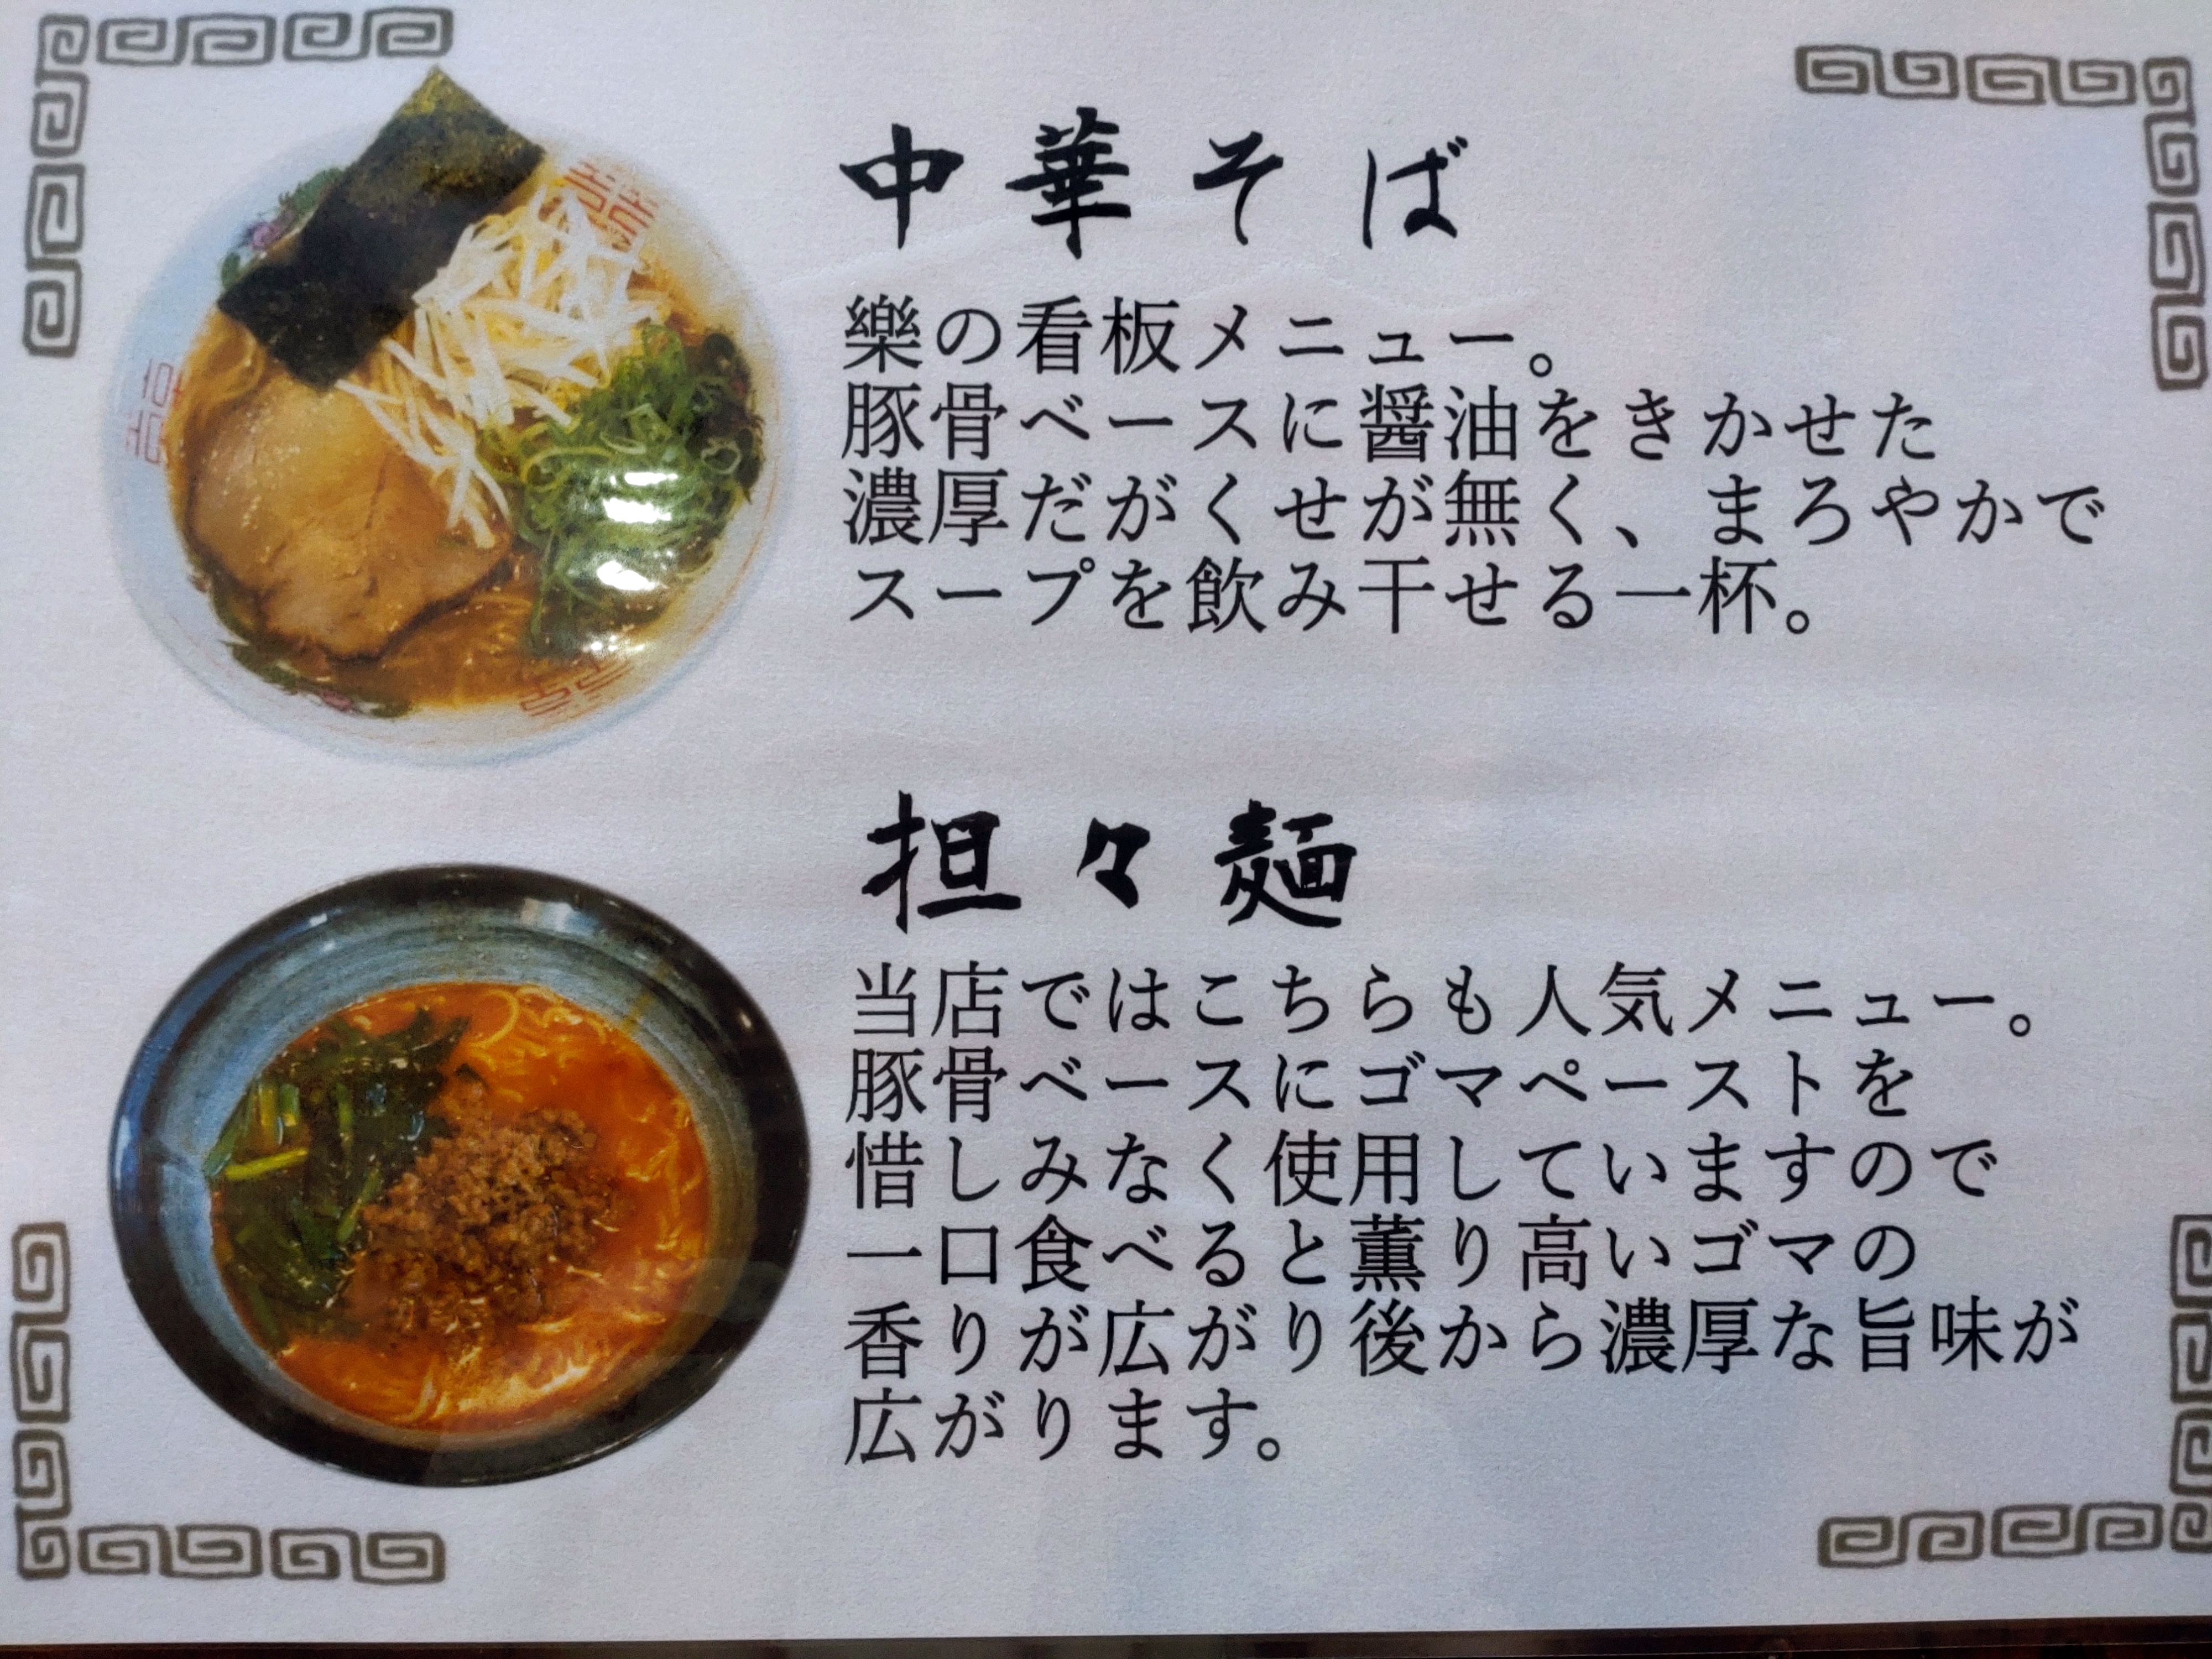 中華そば
樂の看板メニュー。
豚骨ベースに醤油をきかせた
濃厚だがくせが無く、まろやかで
スープを飲み干せる一杯。
担々麺
当店ではこちらも人気メニュー。
豚骨ベースにゴマペーストを
惜しみなく使用していますので
一口食べると薫り高いゴマの
香りが広がり後から濃厚な旨味が
広がります。